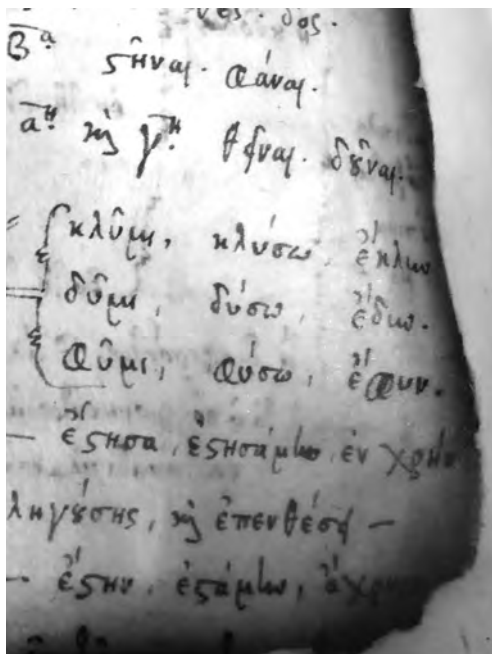 δός.
Βα. στῆναι. φάναι.
αη. καὶ γη. θεῖναι. δοῦναι.
κλῦμι, κλύσω, ἔκλυν
δῦμι, δύσω, ἔδυν.
φῦμι, φύσω, ἔφυν.
— ἔστησα, ἐστησάμην, ἐν
ληγούσης, καὶ ἐπενθέσει —
— ἔστην, ἐστάμην,